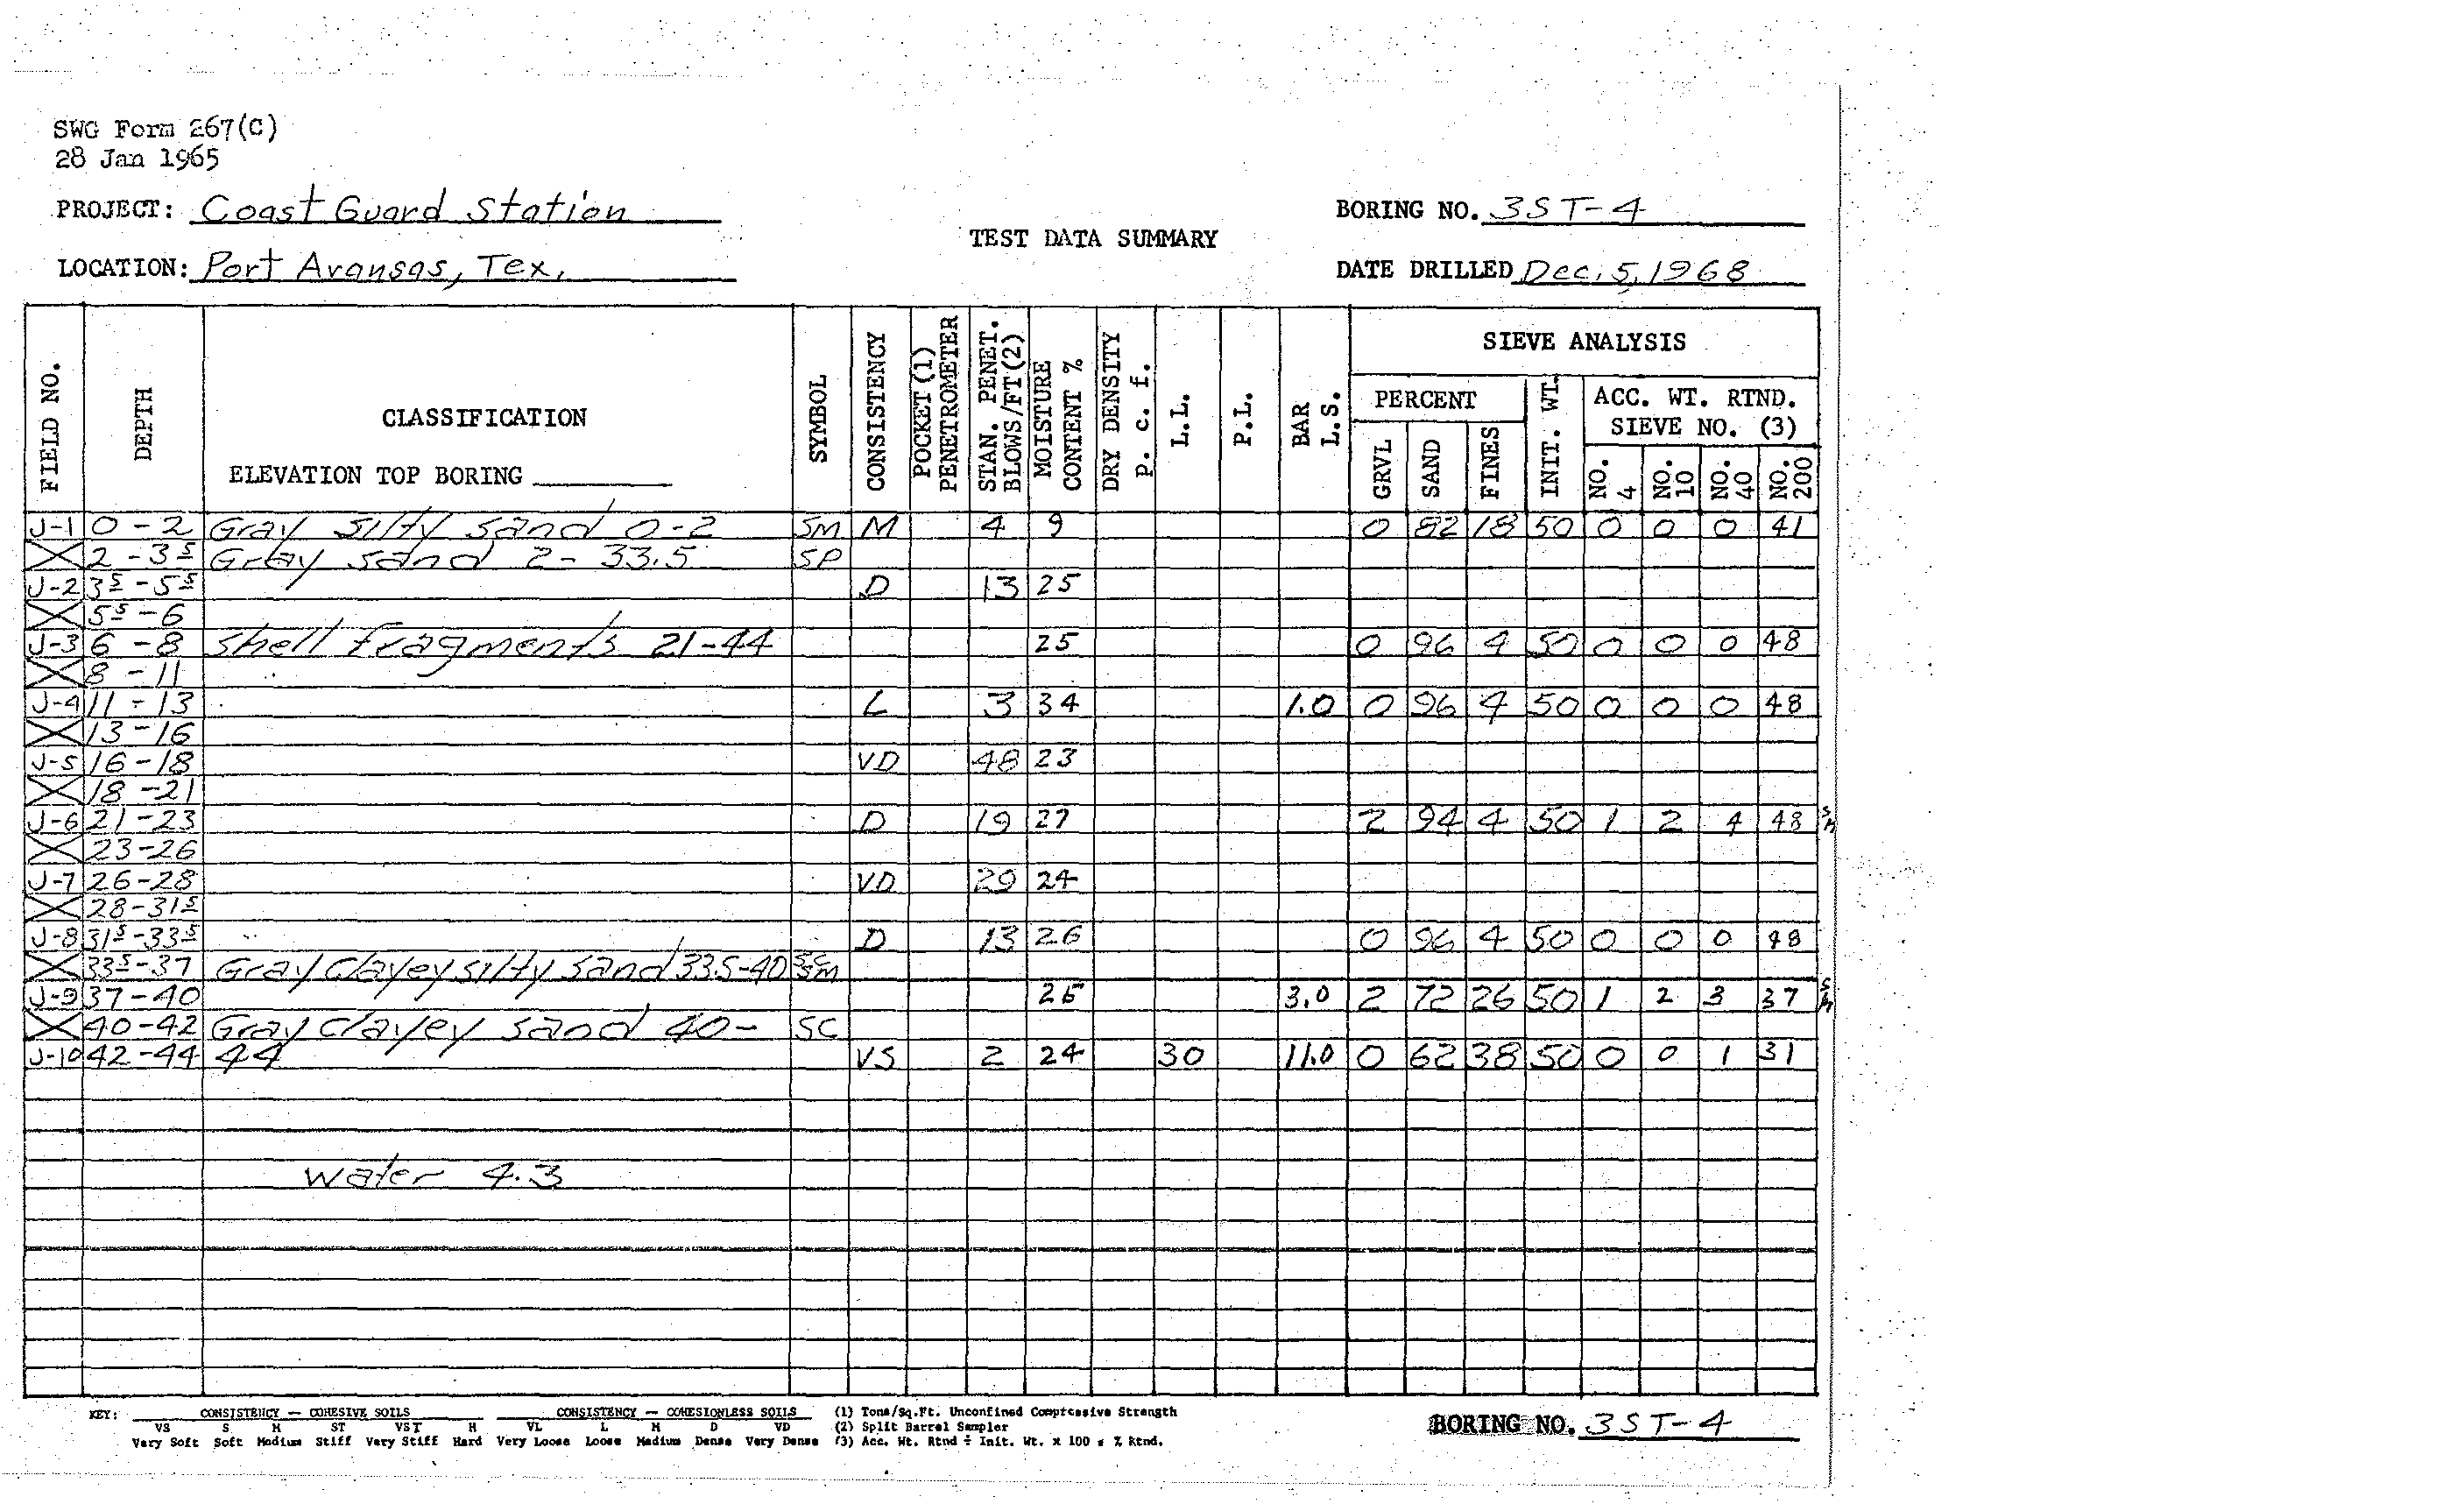 SWG Form 267(C)
28 Jan 1965
PROJECT: Coast Guard Station
BORING NO. 3ST-4
TEST DATA SUMMARY
LOCATION: Port Aransas, Tex.
DATE DRILLED Dec. 5, 1968
FIELD NO. DEPTH CLASSIFICATION ELEVATION TOP BORING SYMBOL CONSISTENCY POCKET (1) PENETROMETER STAN. PENET. BLOWS/FT(2) MOISTURE CONTENT % DRY DENSITY P. c. f. L.L. P.L. BAR L.S. SIEVE ANALYSIS
PERCENT GRVL SAND FINES INIT. WT. ACC. WT. RTND. SIEVE NO. (3) NO. 4 NO. 10 NO. 40 NO. 200
J-1 0 - 2 Gray silty sand 0-2 SM M 4 9 0 82 18 50 0 0 0 41
X 2 - 3 5 Gray sand 2- 33.5 SP
J-2 3 5 - 5 5 D 13 25
X 5 5 - 6
J-3 6 - 8 Shell fragments 21-44 25 0 96 4 50 0 0 0 48
X 8 - 11
J-4 11 - 13 L 3 34 1.0 0 96 4 50 0 0 0 48
X 13 - 16
J-5 16 - 18 VD 48 23
X 18 - 21
J-6 21 - 23 D 19 27 2 94 4 50 1 2 4 48 SH
X 23 - 26
J-7 26 - 28 VD 29 24
X 28 - 31 5
J-8 31 5 - 33 5 D 13 26 0 96 4 50 0 0 0 48
X 33 5 - 37 Gray Clayey silty sand 33.5-40 SC SM
J-9 37 - 40 26 3.0 2 72 26 50 1 2 3 37 SH
X 40-42 Gray clayey sand 40- SC
J-10 42-44 44 VS 2 24 30 11.0 0 62 38 50 0 0 1 31
Water 4.3
KEY: CONSISTENCY — COHESIVE SOILS CONSISTENCY — COHESIONLESS SOILS (1) Tons/Sq.Ft. Unconfined Compressive Strength
VS S M ST VST H VL L M D VD (2) Split Barrel Sampler
Very Soft Soft Medium Stiff Very Stiff Hard Very Loose Loose Medium Dense Very Dense (3) Acc. Wt. Rtnd ÷ Init. Wt. x 100 = % Rtnd.
BORING NO. 3ST-4